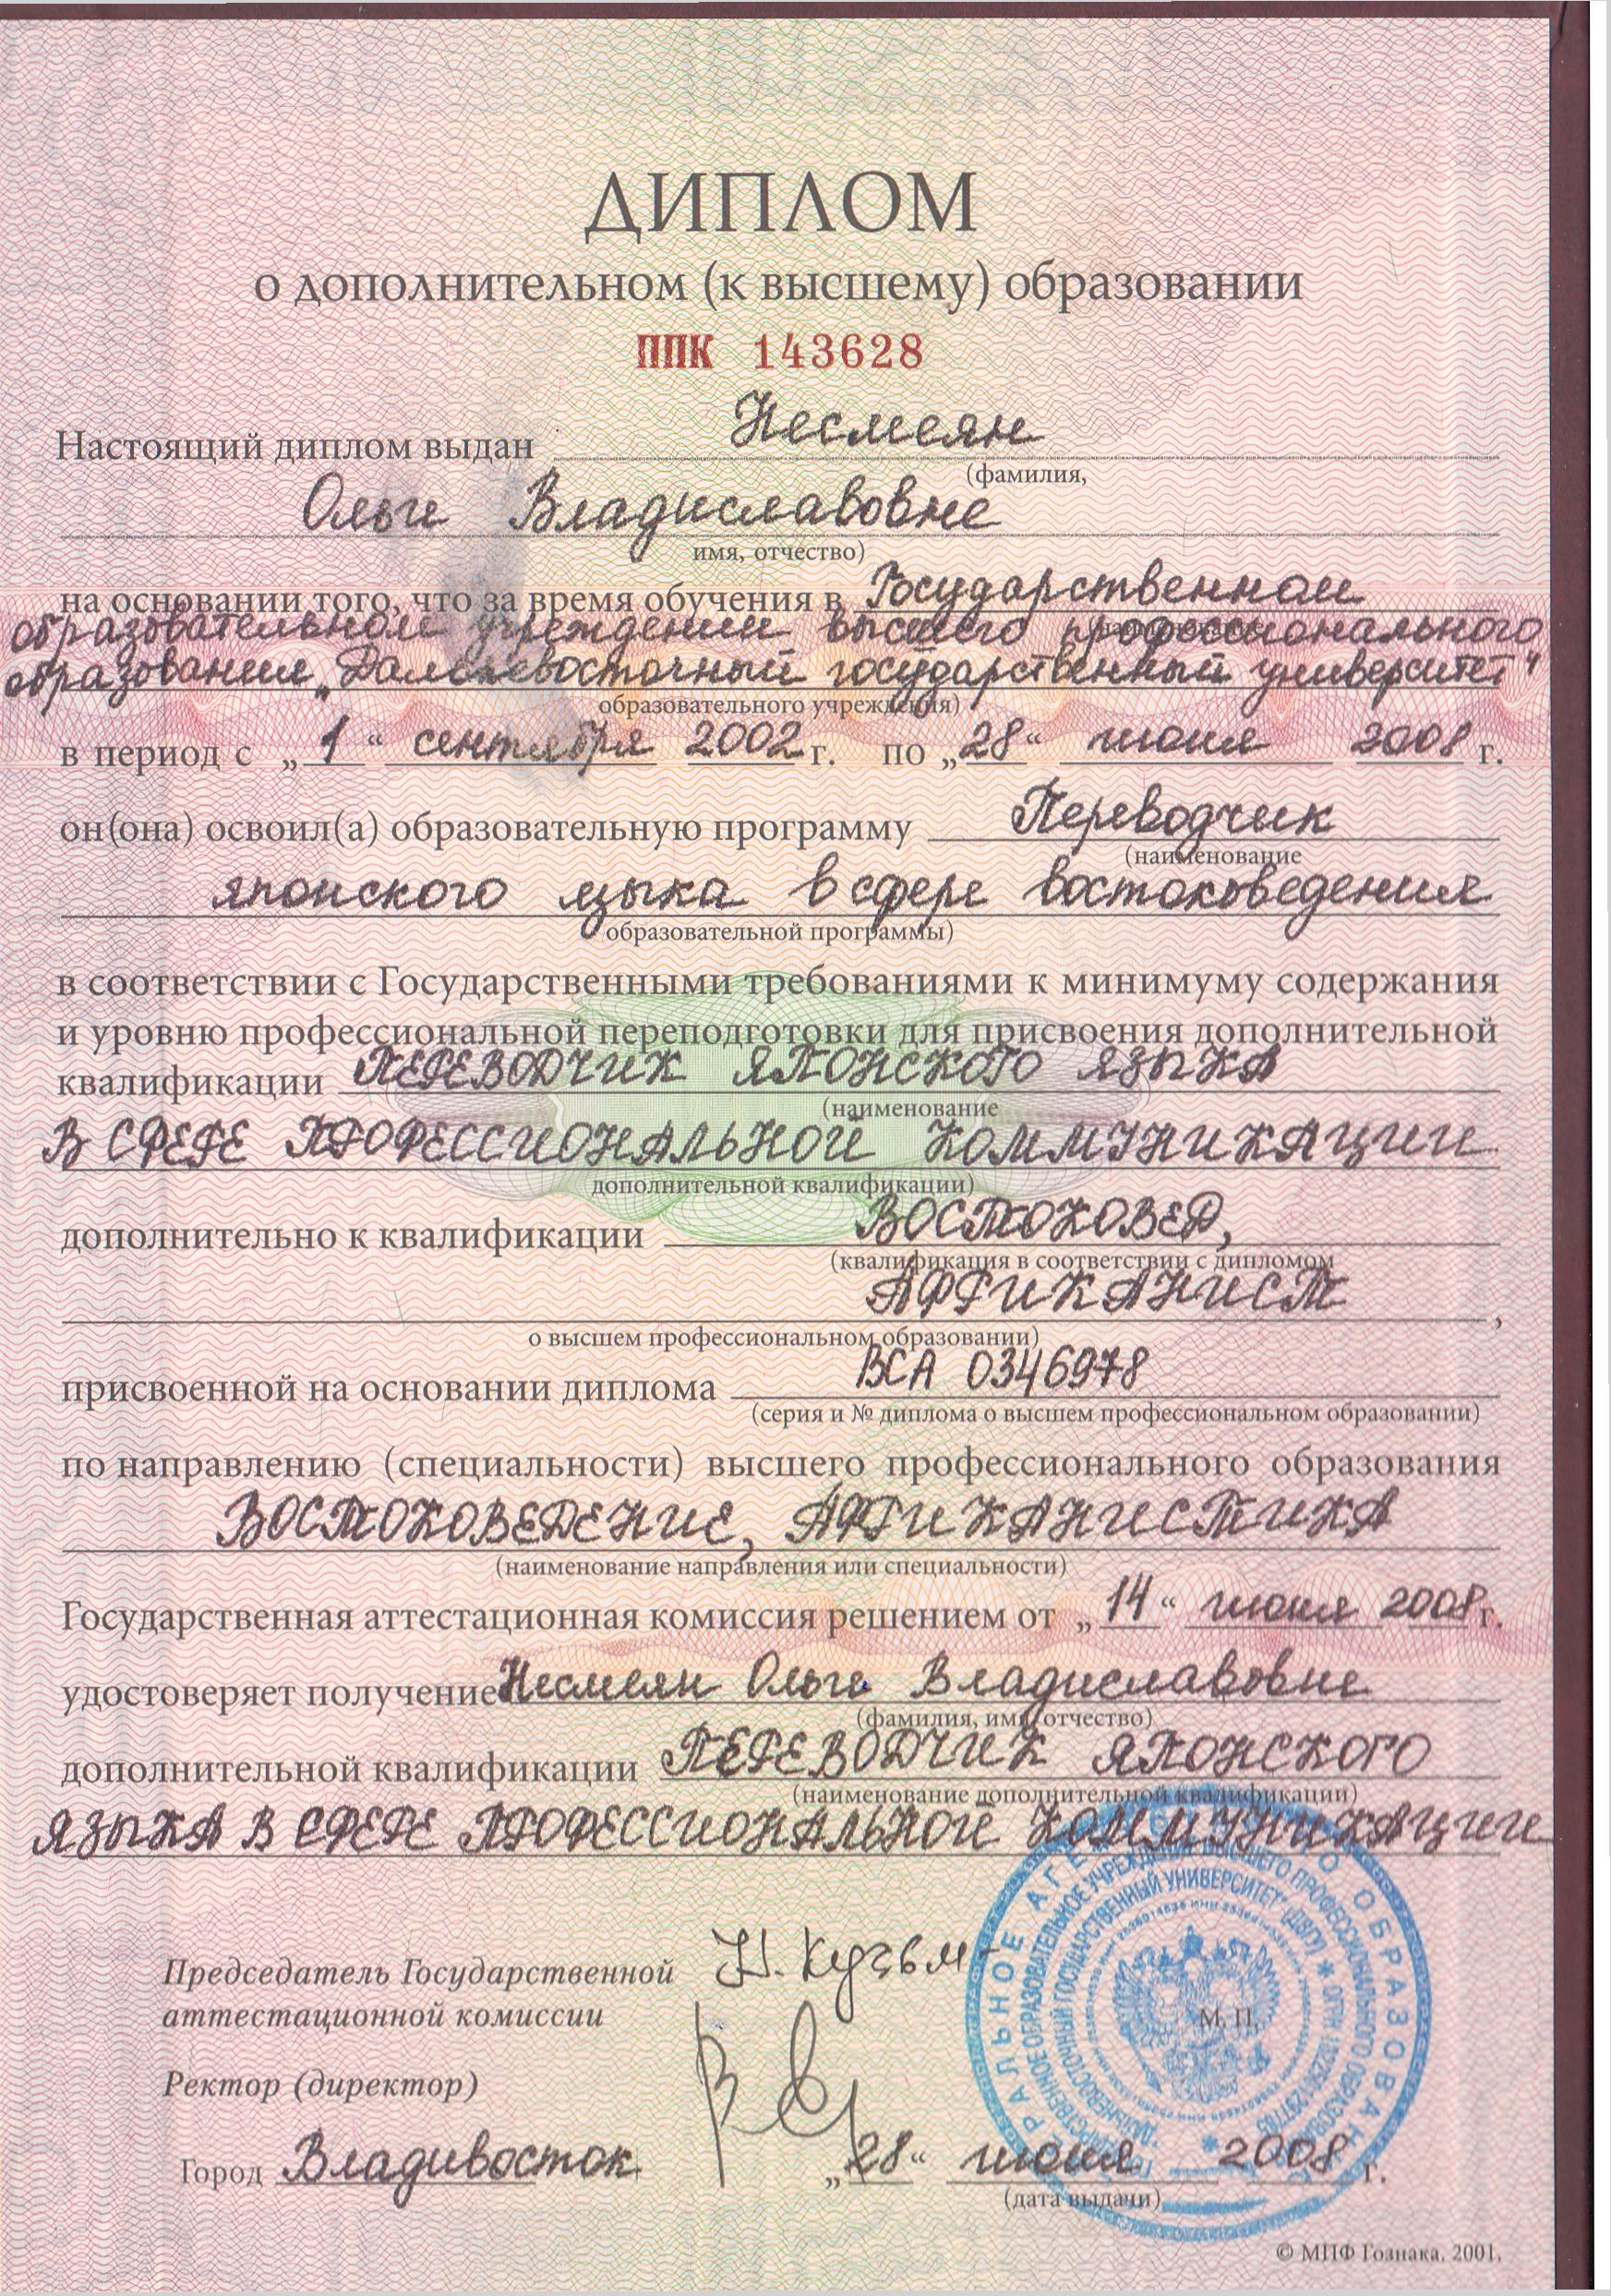 ДИПЛОМ
о дополнительном (к высшему) образовании
ППК 143628
Настоящий диплом выдан Несмеян
(фамилия,
Ольге Владиславовне
имя, отчество)
на основании того, что за время обучения в Государственном
(наименование
образовательном учреждении высшего профессионального
образования „Дальневосточный государственный университет"
образовательного учреждения)
в период с „1“ сентября 2002 г. по „28“ июня 2008 г.
он(она) освоил(а) образовательную программу Переводчик
(наименование
японского языка в сфере востоковедения
образовательной программы)
в соответствии с Государственными требованиями к минимуму содержания
и уровню профессиональной переподготовки для присвоения дополнительной
квалификации ПЕРЕВОДЧИК ЯПОНСКОГО ЯЗЫКА
(наименование
В СФЕРЕ ПРОФЕССИОНАЛЬНОЙ КОММУНИКАЦИИ
дополнительной квалификации)
дополнительно к квалификации ВОСТОКОВЕД,
(квалификация в соответствии с дипломом
АФРИКАНИСТ,
о высшем профессиональном образовании)
присвоенной на основании диплома ВСА 0346978
(серия и № диплома о высшем профессиональном образовании)
по направлению (специальности) высшего профессионального образования
ВОСТОКОВЕДЕНИЕ, АФРИКАНИСТИКА
(наименование направления или специальности)
Государственная аттестационная комиссия решением от „14“ июня 2008 г.
удостоверяет получение Несмеян Ольге Владиславовне
(фамилия, имя, отчество)
дополнительной квалификации ПЕРЕВОДЧИК ЯПОНСКОГО
(наименование дополнительной квалификации)
ЯЗЫКА В СФЕРЕ ПРОФЕССИОНАЛЬНОЙ КОММУНИКАЦИИ
Председатель Государственной
аттестационной комиссии
М. П.
Ректор (директор)
Город Владивосток „28“ июня 2008 г.
(дата выдачи)
© МПФ Гознака, 2001.